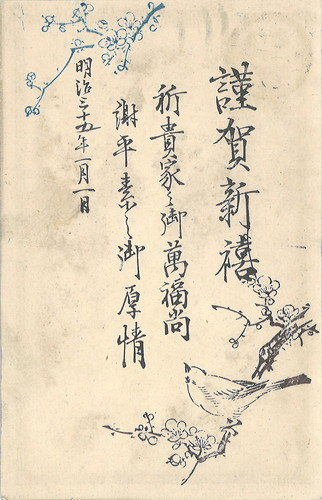 謹賀新禧
祈貴家之御萬福尚
謝平素之御厚情
明治三十五年一月一日